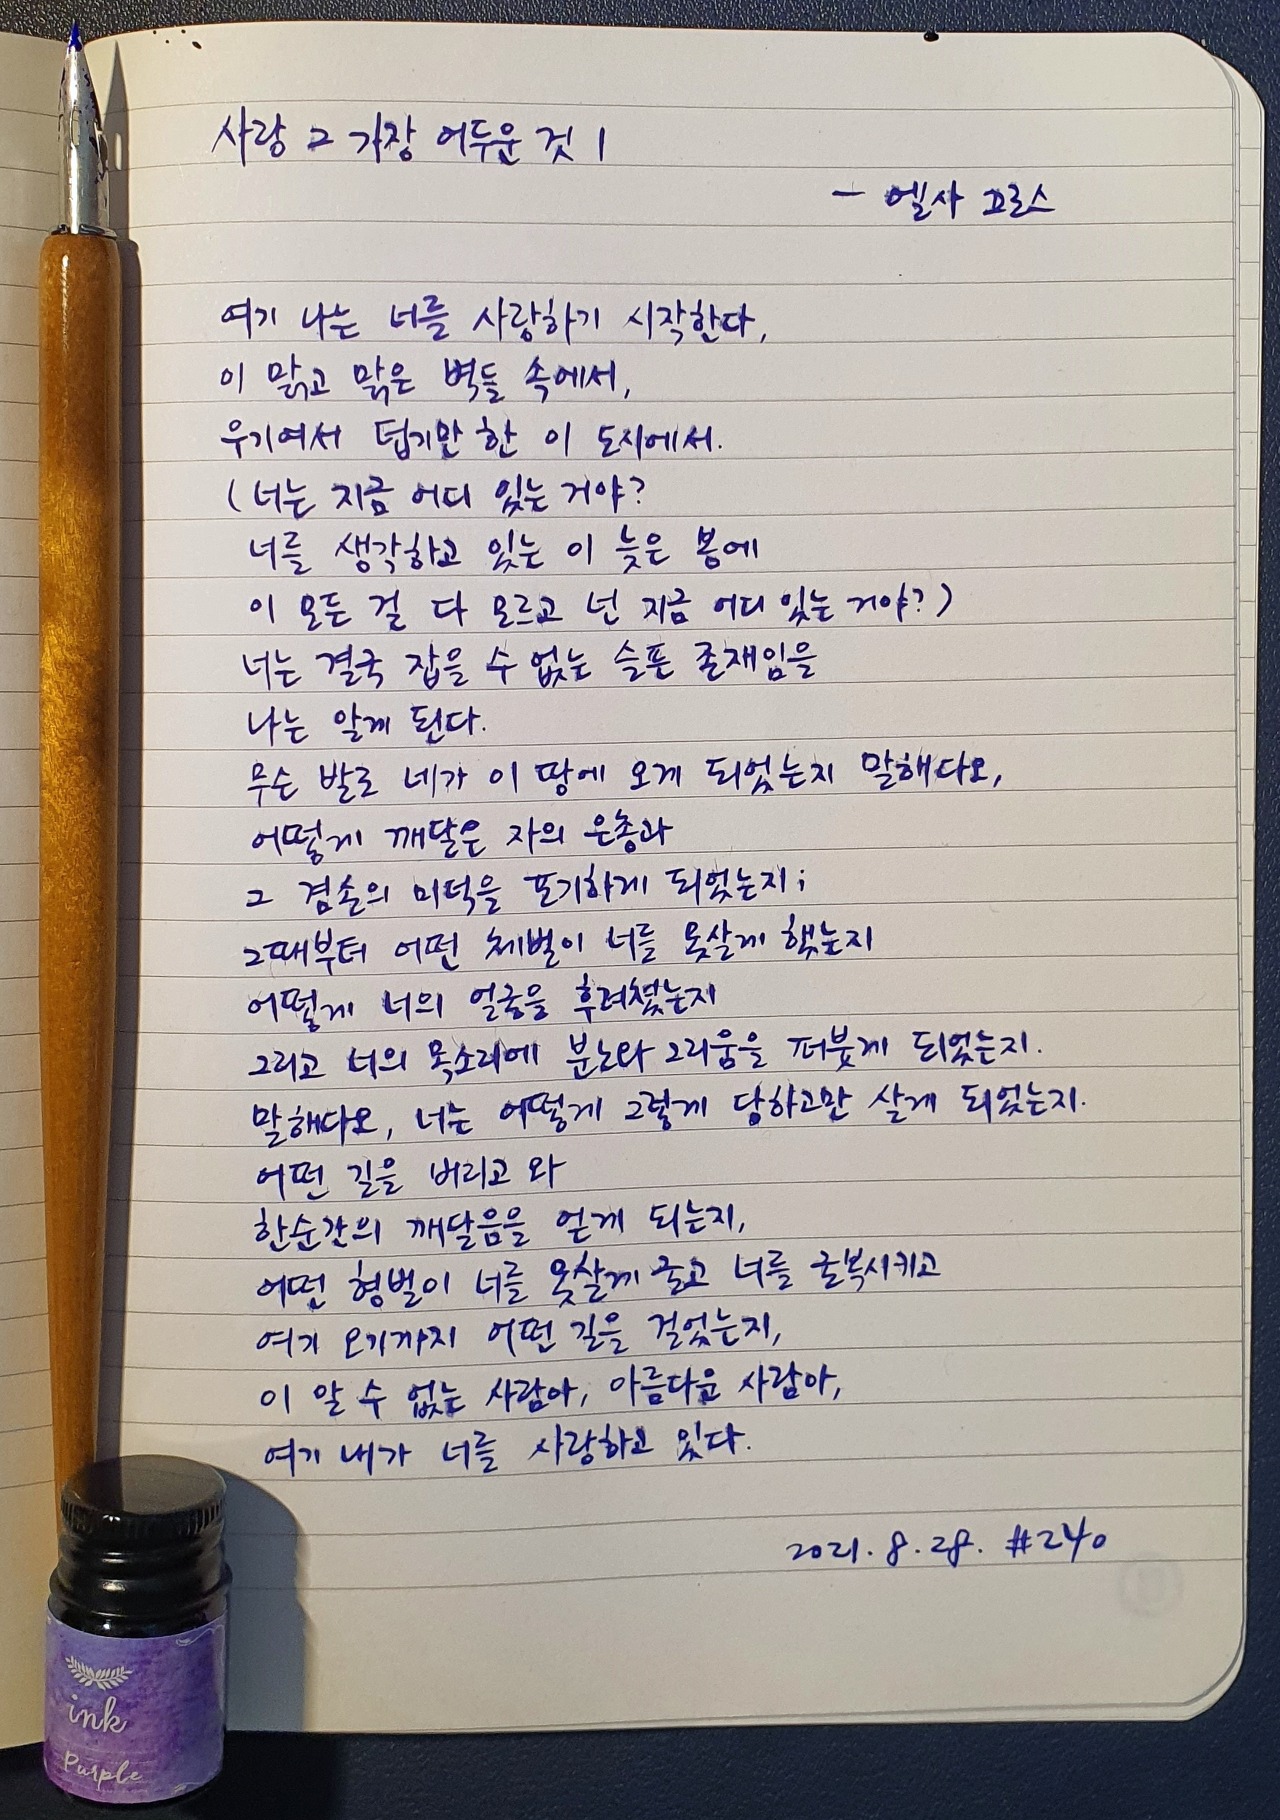 사랑 그 가장 어두운 것 1
- 엘사 끄로스
여기 나는 너를 사랑하기 시작한다,
이 맑고 맑은 벽들 속에서,
우기여서 덥기만 한 이 도시에서.
(너는 지금 어디 있는 거야?
너를 생각하고 있는 이 늦은 봄에
이 모든 걸 다 모르고 넌 지금 어디 있는 거야?)
너는 결국 잡을 수 없는 슬픈 존재임을
나는 알게 된다.
무슨 발로 네가 이 땅에 오게 되었는지 말해다오,
어떻게 깨달은 자의 은총과
그 겸손의 미덕을 포기하게 되었는지;
그때부터 어떤 체벌이 너를 못살게 했는지
어떻게 너의 얼굴을 후려쳤는지
그리고 너의 목소리에 분노와 그리움을 퍼붓게 되었는지.
말해다오, 너는 어떻게 그렇게 당하고만 살게 되었는지.
어떤 길을 버리고 와
한순간의 깨달음을 얻게 되는지,
어떤 형벌이 너를 못살게 굴고 너를 굴복시키고
여기 오기까지 어떤 길을 걸었는지,
이 알 수 없는 사람아, 아름다운 사람아,
여기 내가 너를 사랑하고 있다.
2021. 8. 28. #240
ink
Purple